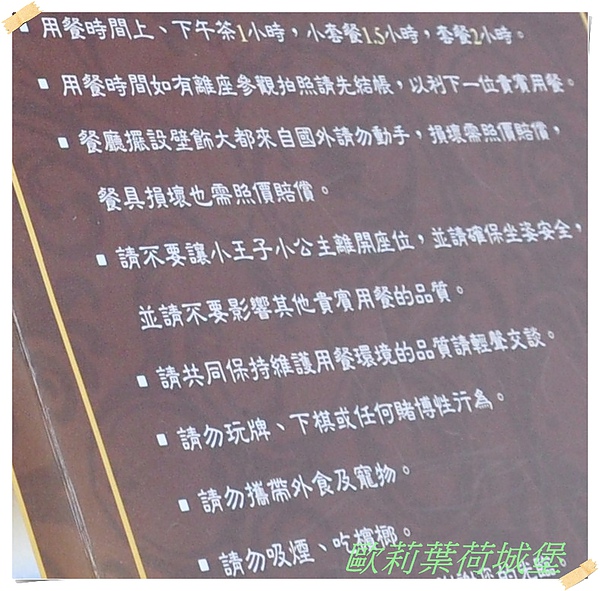 ▪ 用餐時間上、下午茶1小時，小套餐1.5小時，套餐2小時。
▪ 用餐時間如有離座參觀拍照請先結帳，以利下一位貴賓用餐。
▪ 餐廳擺設壁飾大都來自國外請勿動手，損壞需照價賠償，
餐具損壞也需照價賠償。
▪ 請不要讓小王子小公主離開座位，並請確保坐姿安全，
並請不要影響其他貴賓用餐的品質。
▪ 請共同保持維護用餐環境的品質請輕聲交談。
▪ 請勿玩牌、下棋或任何賭博性行為。
▪ 請勿攜帶外食及寵物。
▪ 請勿吸煙、吃檳榔。
歐莉葉荷城堡